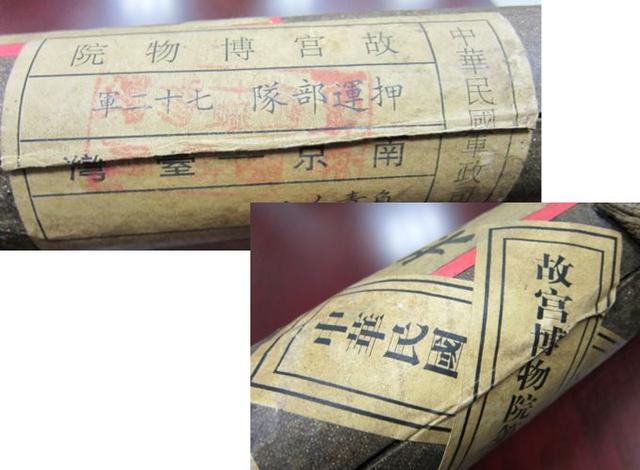 中華民國軍政
故宫博物院
押運部隊 七十二軍
南京—臺灣
中華民國
故宫博物院